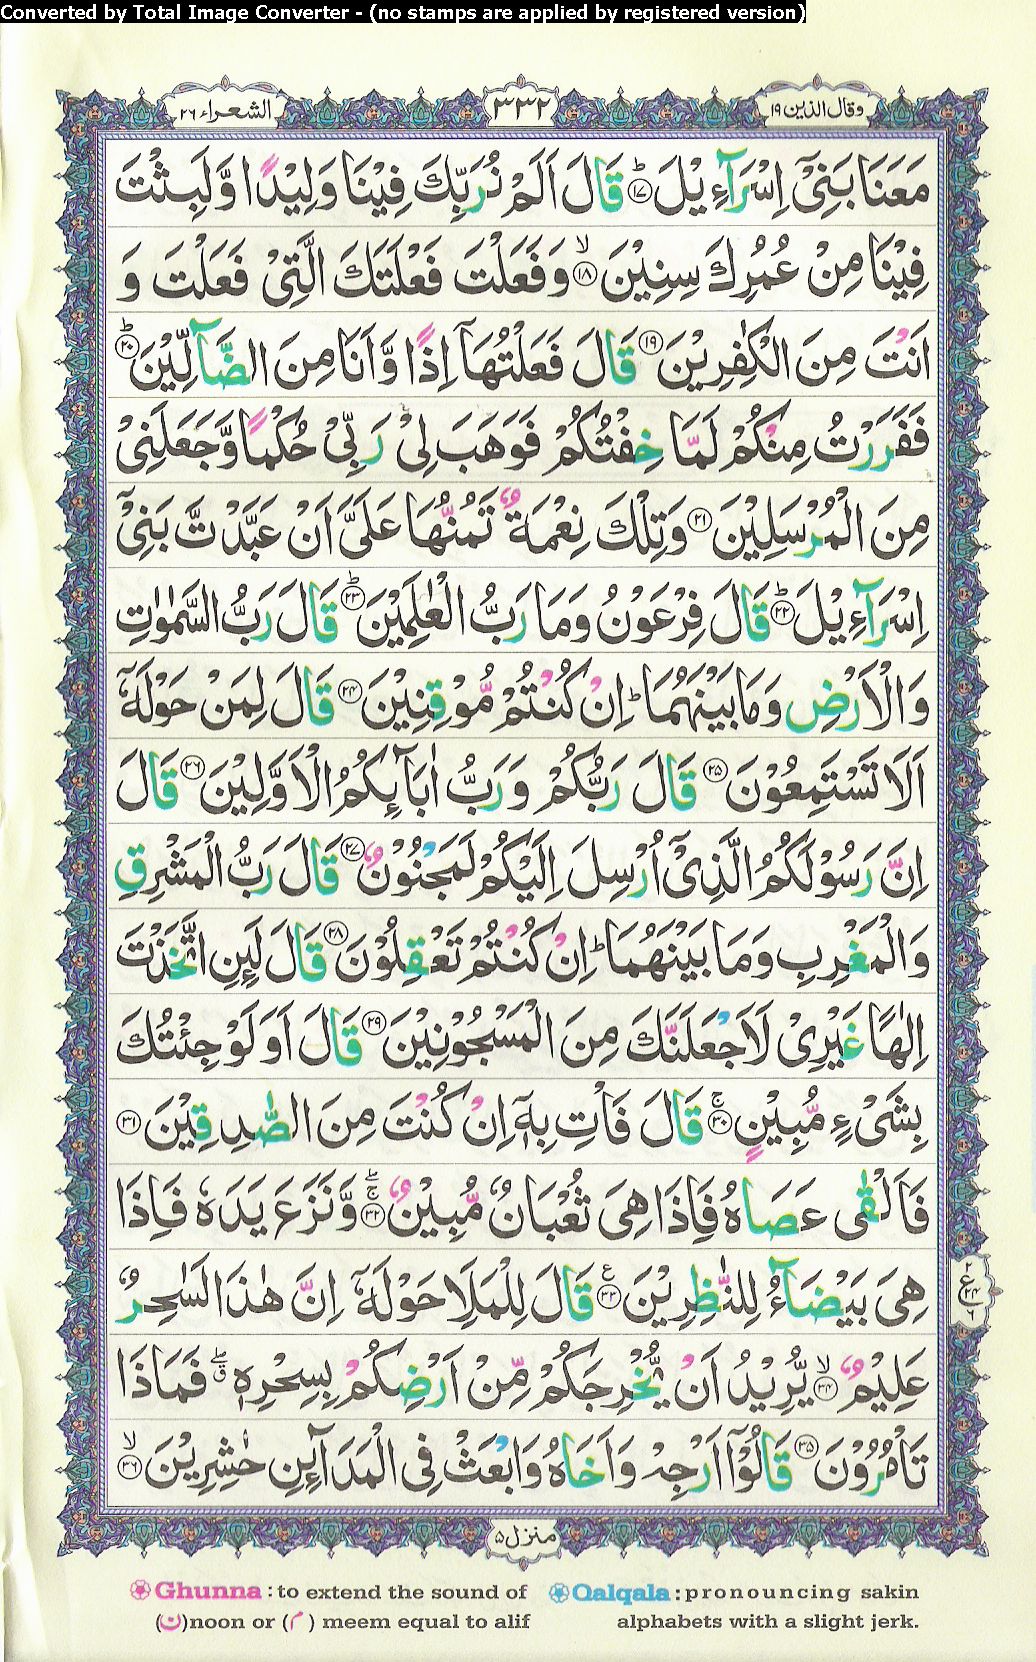 Converted by Total Image Converter - (no stamps are applied by registered version)
وقال الذين ١٩
٣٣٢
الشعراء ٢٦
مَعَنَا بَنِیْۤ اِسْرَآءِیْلَ ؕ﴿۱۷﴾ قَالَ اَلَمْ نُرَبِّكَ فِیْنَا وَلِیْدًا وَّ لَبِثْتَ
فِیْنَا مِنْ عُمُرِكَ سِنِیْنَ ۙ﴿۱۸﴾ وَفَعَلْتَ فَعْلَتَكَ الَّتِیْ فَعَلْتَ وَ
اَنْتَ مِنَ الْكٰفِرِیْنَ ﴿۱۹﴾ قَالَ فَعَلْتُهَاۤ اِذًا وَّ اَنَا مِنَ الضَّآلِّیْنَ ؕ﴿۲۰﴾
فَفَرَرْتُ مِنْكُمْ لَمَّا خِفْتُكُمْ فَوَهَبَ لِیْ رَبِّیْ حُكْمًا وَّجَعَلَنِیْ
مِنَ الْمُرْسَلِیْنَ ﴿۲۱﴾ وَتِلْكَ نِعْمَةٌ تَمُنُّهَا عَلَیَّ اَنْ عَبَّدْتَّ بَنِیْۤ
اِسْرَآءِیْلَ ؕ﴿۲۲﴾ قَالَ فِرْعَوْنُ وَمَا رَبُّ الْعٰلَمِیْنَ ؕ﴿۲۳﴾ قَالَ رَبُّ السَّمٰوٰتِ
وَالْاَرْضِ وَمَا بَیْنَهُمَا ؕ اِنْ كُنْتُمْ مُّوْقِنِیْنَ ﴿۲۴﴾ قَالَ لِمَنْ حَوْلَهٗۤ
اَلَا تَسْتَمِعُوْنَ ﴿۲۵﴾ قَالَ رَبُّكُمْ وَرَبُّ اٰبَآئِكُمُ الْاَوَّلِیْنَ ﴿۲۶﴾ قَالَ
اِنَّ رَسُوْلَكُمُ الَّذِیْۤ اُرْسِلَ اِلَیْكُمْ لَمَجْنُوْنٌ ﴿۲۷﴾ قَالَ رَبُّ الْمَشْرِقِ
وَالْمَغْرِبِ وَمَا بَیْنَهُمَا ؕ اِنْ كُنْتُمْ تَعْقِلُوْنَ ﴿۲۸﴾ قَالَ لَىِٕنِ اتَّخَذْتَ
اِلٰهًا غَیْرِیْ لَاَجْعَلَنَّكَ مِنَ الْمَسْجُوْنِیْنَ ﴿۲۹﴾ قَالَ اَوَلَوْ جِئْتُكَ
بِشَیْءٍ مُّبِیْنٍ ۚ﴿۳۰﴾ قَالَ فَاْتِ بِهٖۤ اِنْ كُنْتَ مِنَ الصّٰدِقِیْنَ ﴿۳۱﴾
فَاَلْقٰی عَصَاهُ فَاِذَا هِیَ ثُعْبَانٌ مُّبِیْنٌ ۚۖ﴿۳۲﴾ وَّنَزَعَ یَدَهٗ فَاِذَا
هِیَ بَیْضَآءُ لِلنّٰظِرِیْنَ ع﴿۳۳﴾ قَالَ لِلْمَلَاِ حَوْلَهٗۤ اِنَّ هٰذَا لَسٰحِرٌ
عَلِیْمٌ ۙ﴿۳۴﴾ یُّرِیْدُ اَنْ یُّخْرِجَكُمْ مِّنْ اَرْضِكُمْ بِسِحْرِهٖ ۖۗ فَمَاذَا
تَاْمُرُوْنَ ﴿۳۵﴾ قَالُوْۤا اَرْجِهْ وَاَخَاهُ وَابْعَثْ فِی الْمَدَآىِٕنِ حٰشِرِیْنَ ۙ﴿۳۶﴾
٢
ع
٢٤
٦
منزل ۵
Ghunna : to extend the sound of
(ن)noon or (م) meem equal to alif
Qalqala : pronouncing sakin
alphabets with a slight jerk.